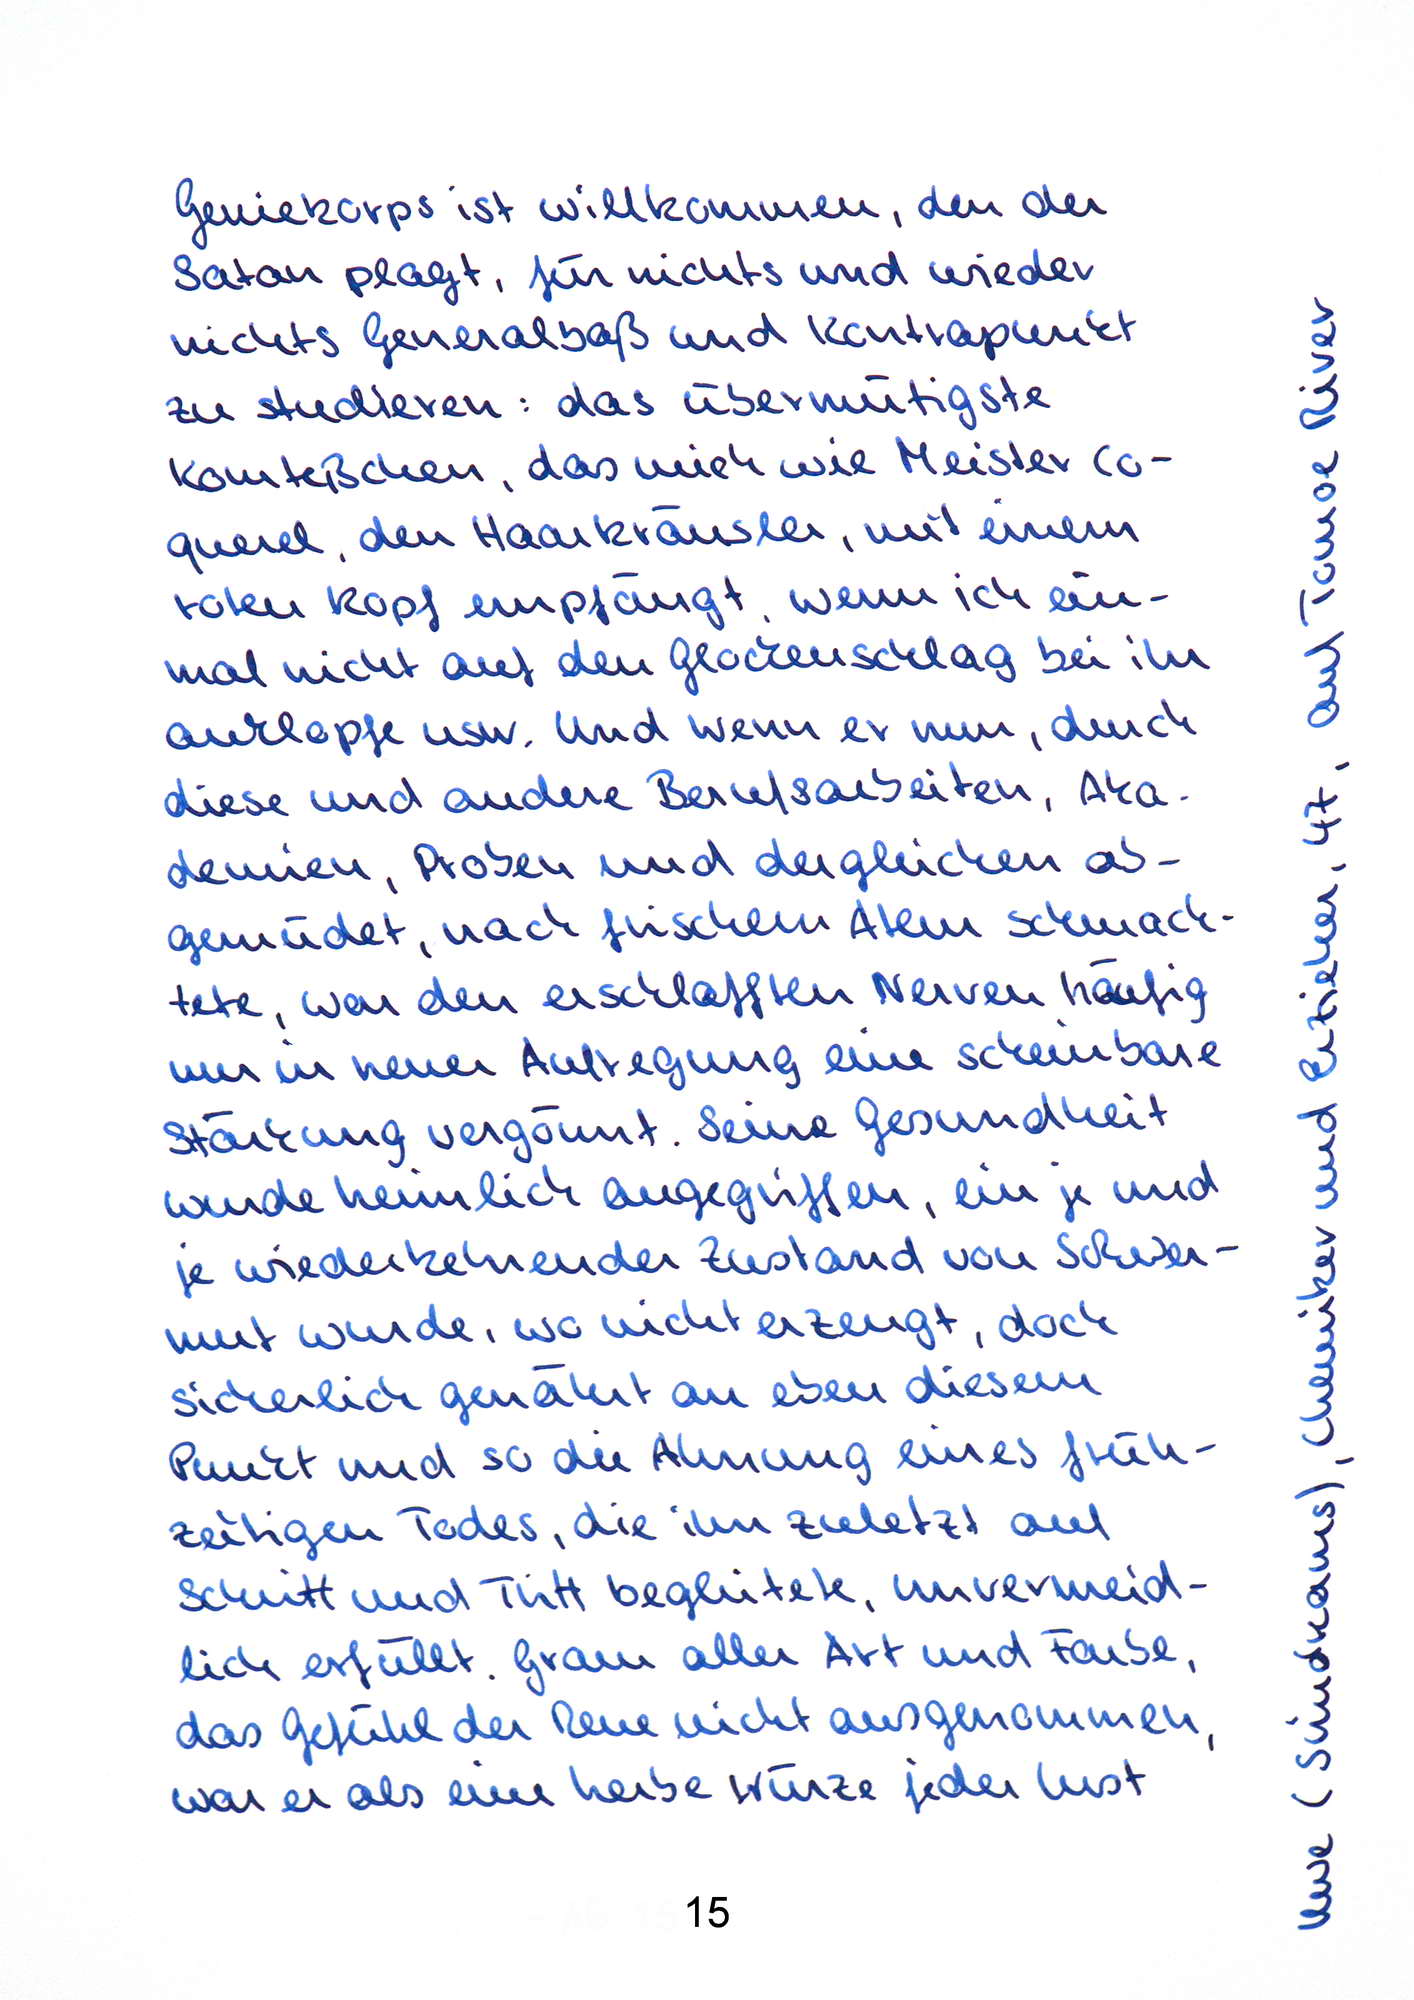 Geniekorps ist willkommen, den der
Satan plagt, für nichts und wieder
nichts Generalbaß und Kontrapunkt
zu studieren: das übermütigste
Komteßchen, das mich wie Meister Co-
querel, den Haarkräusler, mit einem
roten Kopf empfängt, wenn ich ein-
mal nicht auf den Glockenschlag bei ihr
anklopfe usw. Und wenn er nun, durch
diese und andere Berufsarbeiten, Aka-
demien, Proben und dergleichen ab-
gemüdet, nach frischem Atem schmach-
tete, war den erschlafften Nerven häufig
nur in neuer Aufregung eine scheinbare
Stärkung vergönnt. Seine Gesundheit
wurde heimlich angegriffen, ein je und
je wiederkehrender Zustand von Schwer-
mut wurde, wo nicht erzeugt, doch
sicherlich genährt an eben diesem
Punkt und so die Ahnung eines früh-
zeitigen Todes, die ihn zuletzt auf
Schritt und Tritt begleitete, unvermeid-
lich erfüllt. Gram aller Art und Farbe,
das Gefühl der Reue nicht ausgenommen,
war er als eine herbe Würze jeder Lust
15
Uwe (Sindkams), Chemiker und Erzieher, 47, auf Tomoe River